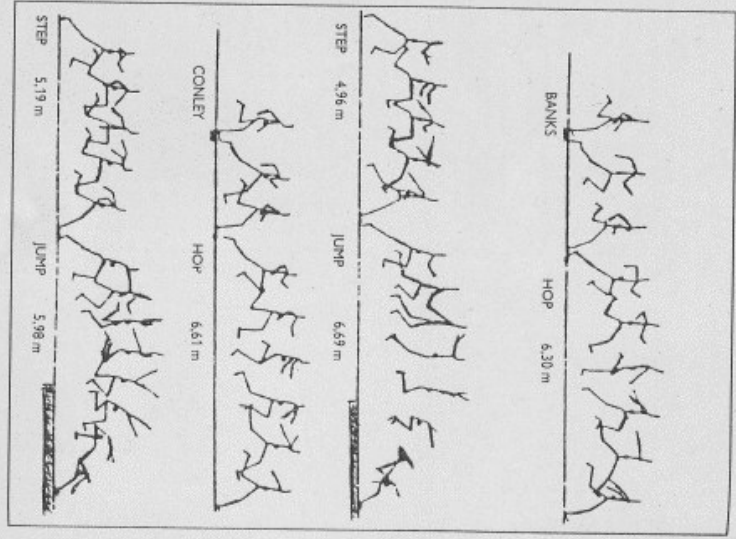 BANKS HOP 6,30 m
STEP 4,96 m JUMP 6,69 m
CONLEY HOP 6,61 m
STEP 5,19 m JUMP 5,98 m